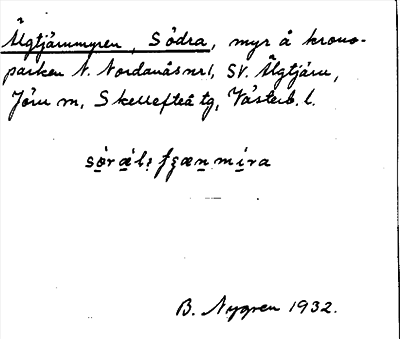 Älgtjärnmyren, Södra, myr å krono-
parken N. Nordanås nr 1, SV. Älgtjärn,
Jörn sn, Skellefteå tg, Västerb. l.
B. Nygren 1932.